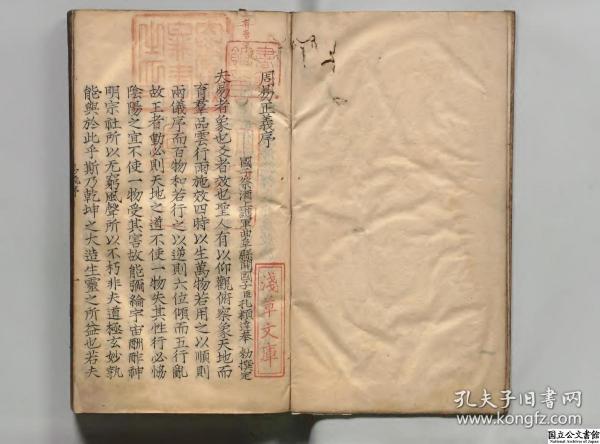 周易正義序
國子祭酒上護軍曲阜縣開國子臣孔穎達奉 勑撰定
夫易者象也爻者效也聖人有以仰觀俯察象天地而
育羣品雲行雨施效四時以生萬物若用之以順則
兩儀序而百物和若行之以逆則六位傾而五行亂
故王者動必則天地之道不使一物失其性行必恊
陰陽之宜不使一物受其害故能彌綸宇宙酬酢神
明宗社所以无窮風聲所以不朽非夫道極玄妙孰
能與於此乎斯乃乾坤之大造生靈之所益也若夫
淺草文庫
孔夫子旧书网
kongfz.com
国立公文書館
National Archives of Japan